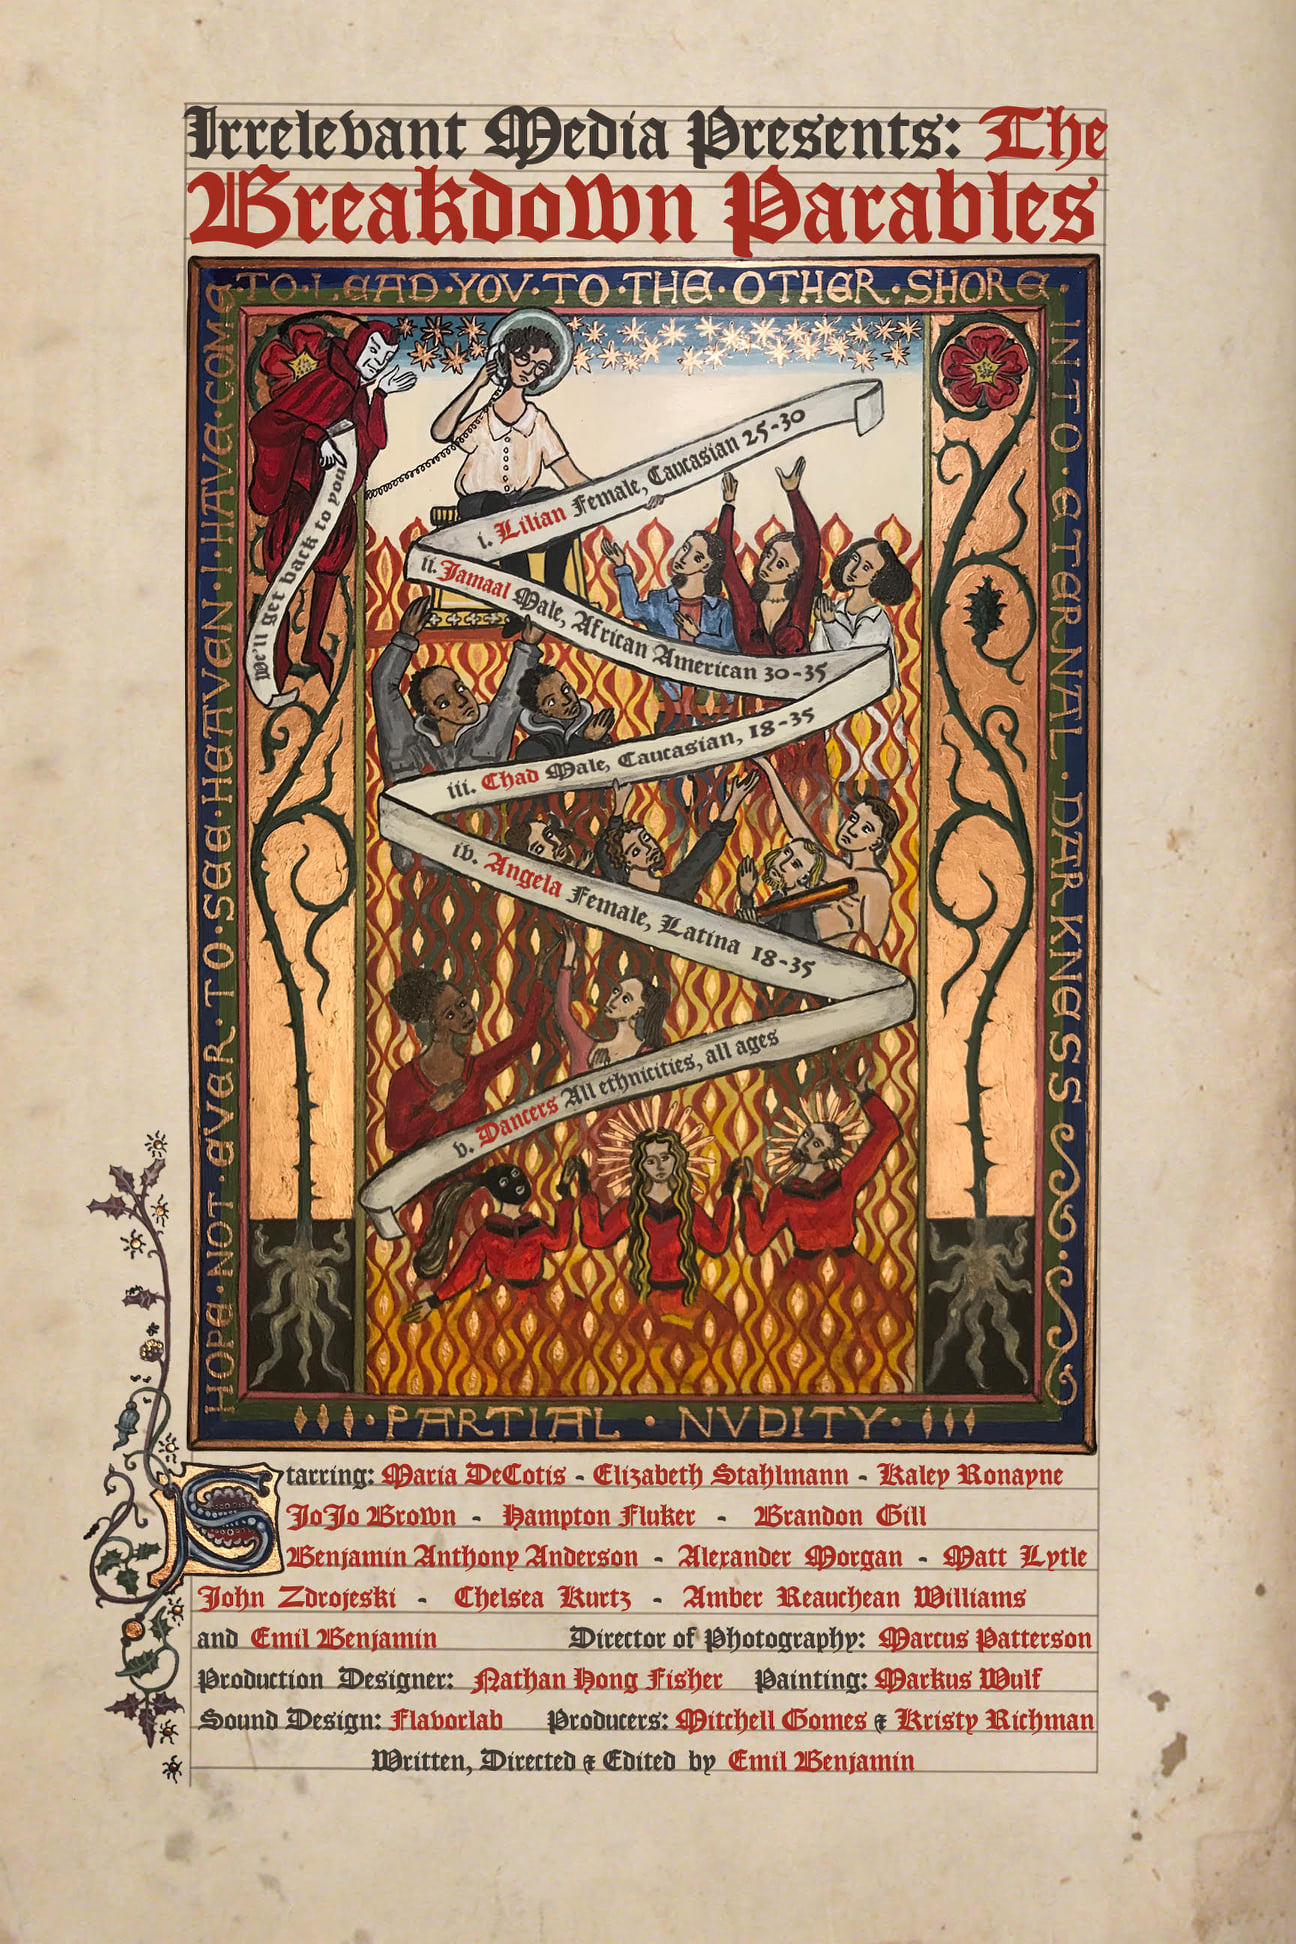 Irrelevant Media Presents: The
Breakdown Parables
HOPE·NOT·EVER·TO·SEE·HEAVEN·I·HAVE·COME
TO·LEAD·YOV·TO·THE·OTHER·SHORE·
INTO·ETERNAL·DARKNESS
·PARTIAL·NVDITY·
We'll get back to you!
i. Lilian Female, Caucasian 25-30
ii. Jamaal Male, African American 30-35
iii. Chad Male, Caucasian, 18-35
iv. Angela Female, Latina 18-35
v. Dancers All ethnicities, all ages
Starring: Maria DeCotis - Elizabeth Stahlmann - Kaley Ronayne
JoJo Brown - Hampton Fluker - Brandon Gill
Benjamin Anthony Anderson - Alexander Morgan - Matt Lytle
John Zdrojeski - Chelsea Kurtz - Amber Reauchean Williams
and Emil Benjamin Director of Photography: Marcus Patterson
Production Designer: Nathan Hong Fisher Painting: Markus Wulf
Sound Design: Flavorlab Producers: Mitchell Gomes & Kristy Richman
Written, Directed & Edited by Emil Benjamin